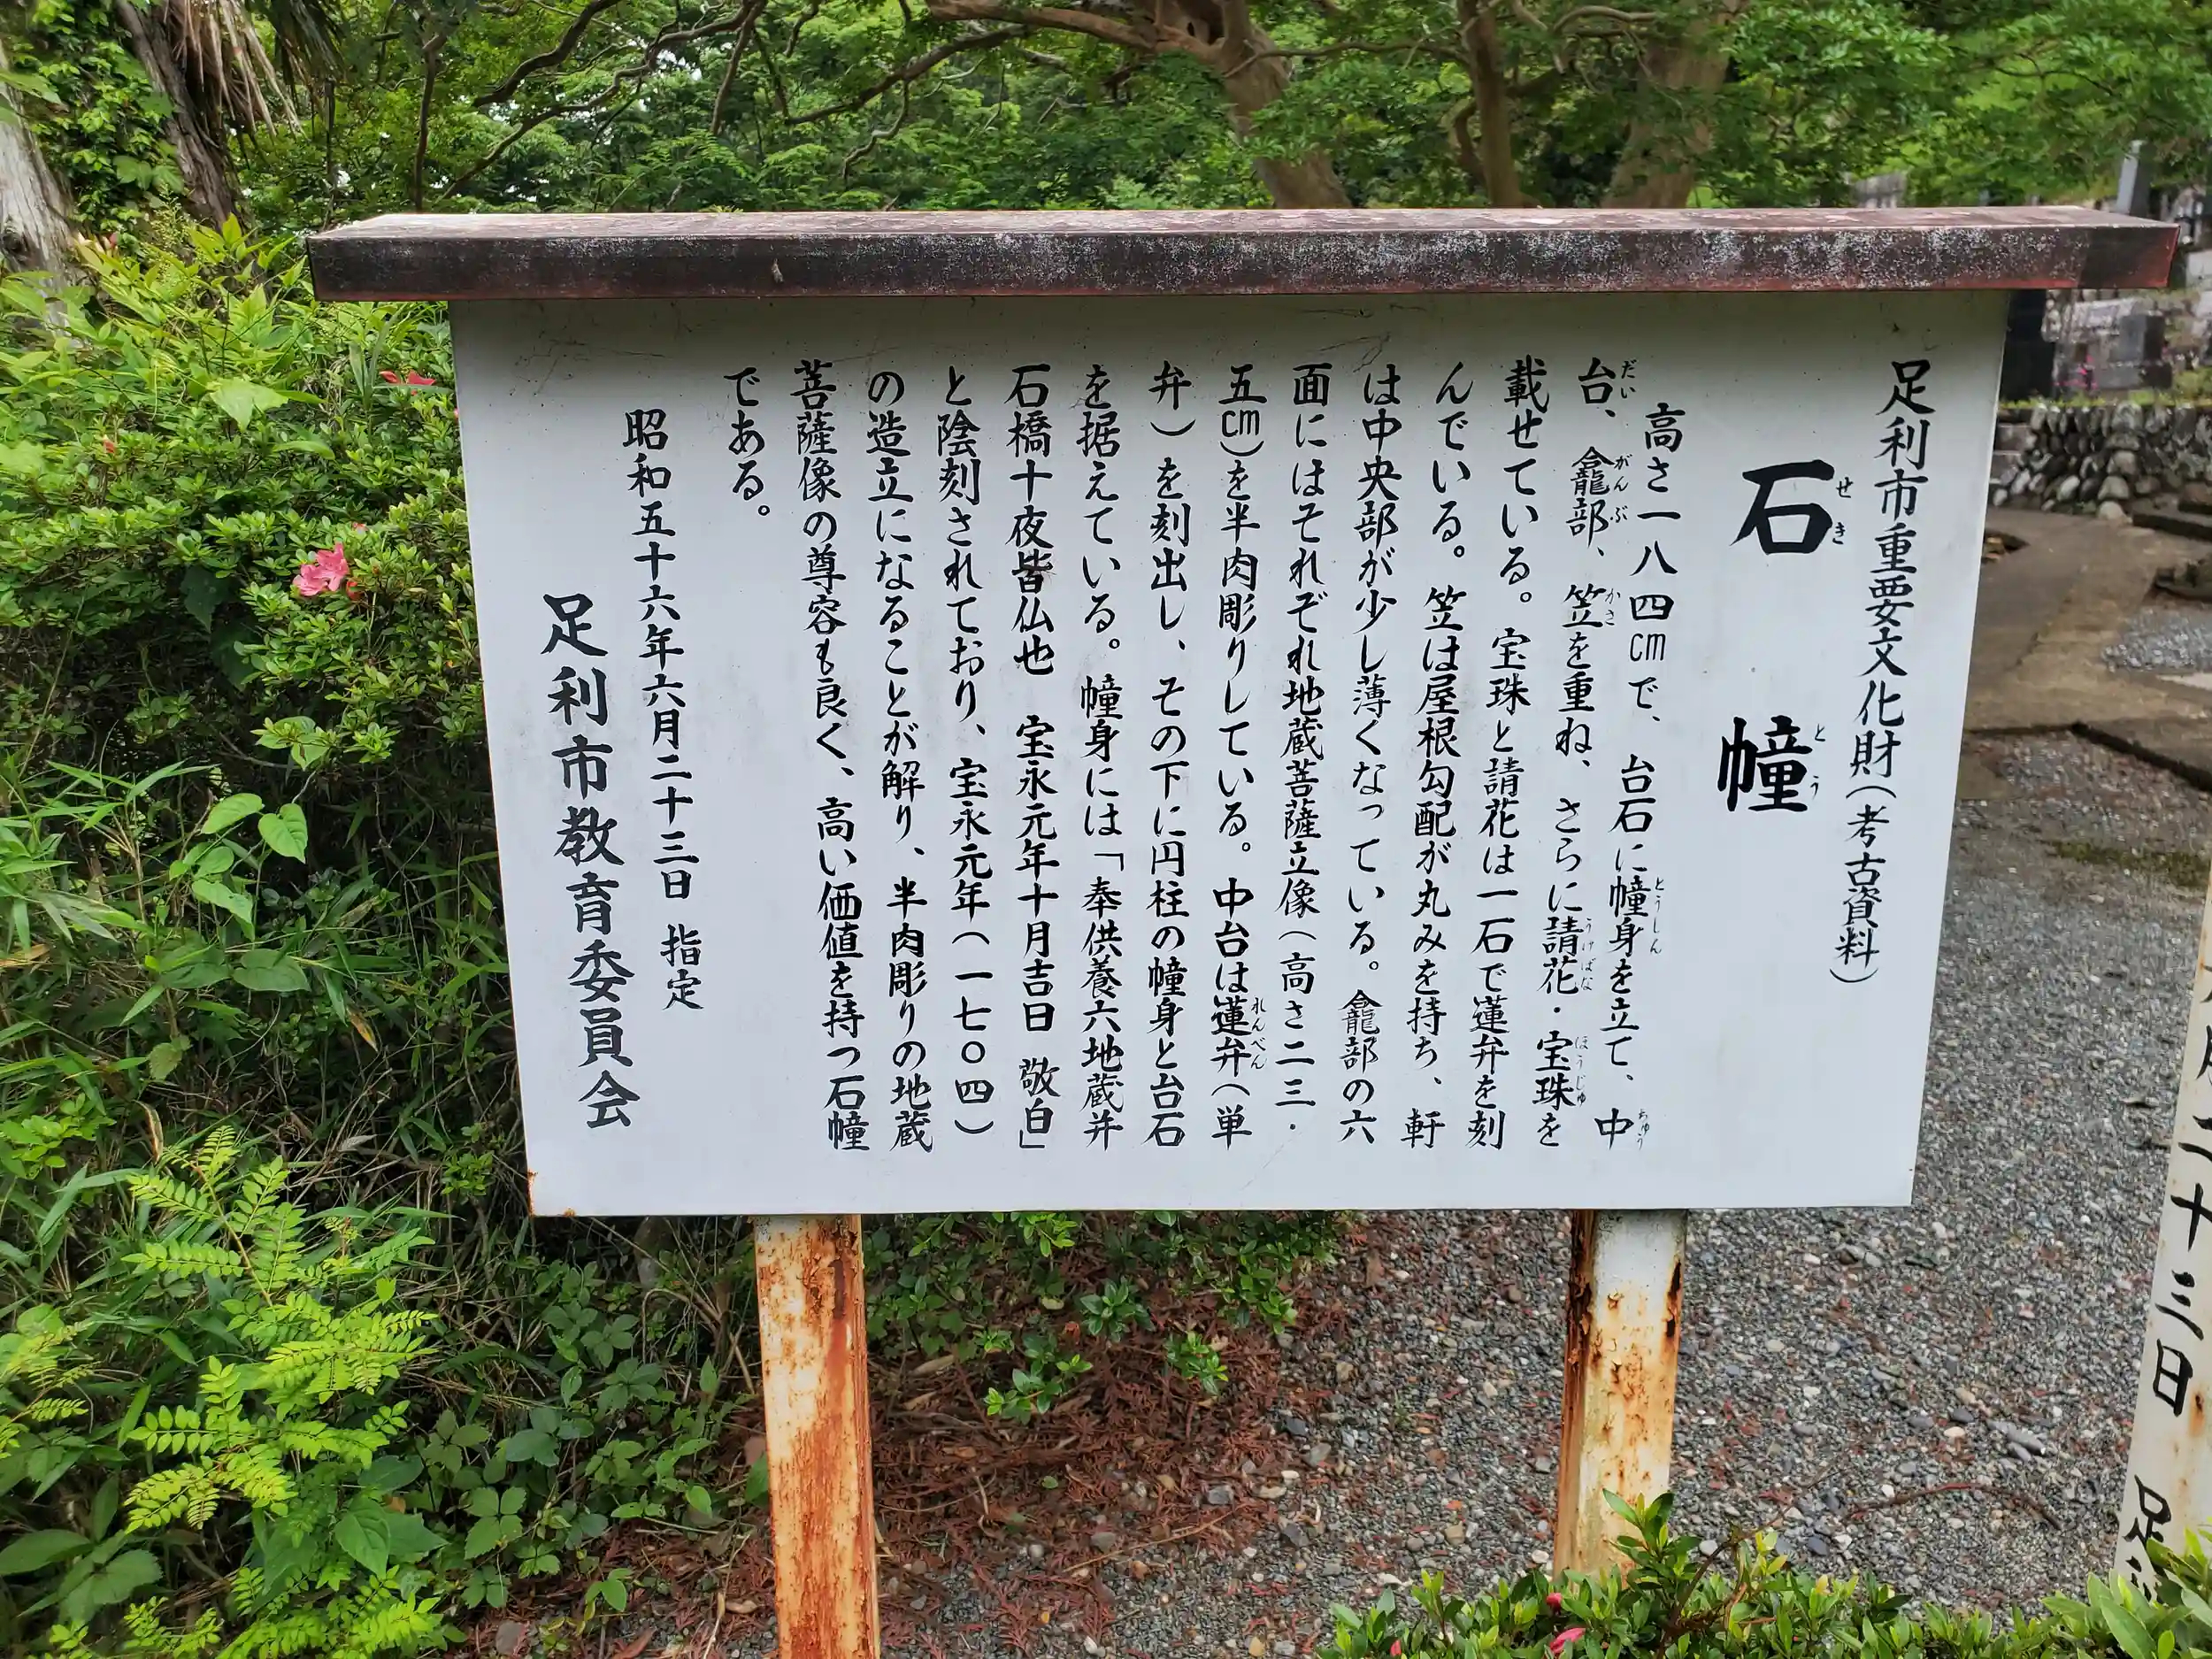 足利市重要文化財（考古資料）
石幢
せきとう
高さ一八四㎝で、台石に幢身を立て、中
とうしん
ちゅう
台、龕部、笠を重ね、さらに請花・宝珠を
だい
がんぶ
かさ
うけばな
ほうじゅ
載せている。宝珠と請花は一石で蓮弁を刻
んでいる。笠は屋根勾配が丸みを持ち、軒
は中央部が少し薄くなっている。龕部の六
面にはそれぞれ地蔵菩薩立像（高さ二三．
五㎝）を半肉彫りしている。中台は蓮弁（単
れんべん
弁）を刻出し、その下に円柱の幢身と台石
を据えている。幢身には「奉供養六地蔵并
石橋十夜皆仏也　宝永元年十月吉日　敬白」
と陰刻されており、宝永元年（一七〇四）
の造立になることが解り、半肉彫りの地蔵
菩薩像の尊容も良く、高い価値を持つ石幢
である。
昭和五十六年六月二十三日　指定
足利市教育委員会
二十三日　足